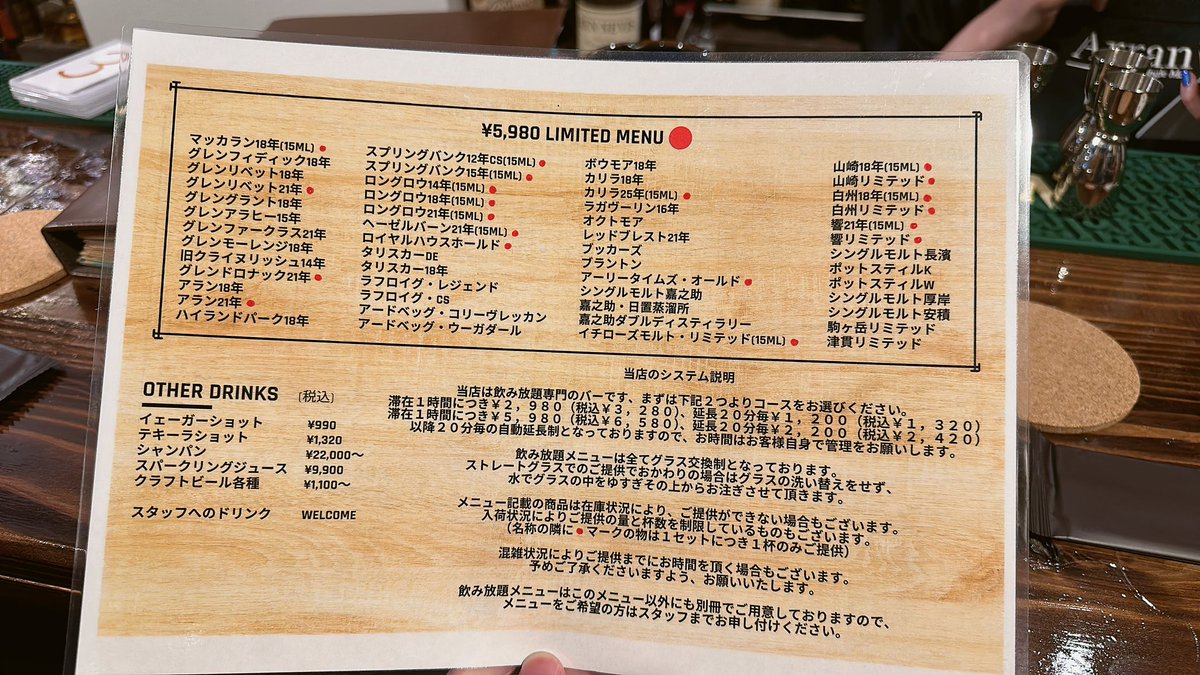 Arran
¥5,980 LIMITED MENU
マッカラン18年(15ML)
グレンフィディック18年
グレンリベット18年
グレンリベット21年
グレングラント18年
グレンアラヒー15年
グレンファークラス21年
グレンモーレンジ18年
旧クライヌリッシュ14年
グレンドロナック21年
アラン18年
アラン21年
ハイランドパーク18年
スプリングバンク12年CS(15ML)
スプリングバンク15年(15ML)
ロングロウ14年(15ML)
ロングロウ18年(15ML)
ロングロウ21年(15ML)
ヘーゼルバーン21年(15ML)
ロイヤルハウスホールド
タリスカーDE
タリスカー18年
ラフロイグ・レジェンド
ラフロイグ・CS
アードベッグ・コリーヴレッカン
アードベッグ・ウーガダール
ボウモア18年
カリラ18年
カリラ25年(15ML)
ラガヴーリン16年
オクトモア
レッドブレスト21年
ブッカーズ
ブラントン
アーリータイムズ・オールド
シングルモルト嘉之助
嘉之助・日置蒸溜所
嘉之助ダブルディスティラリー
イチローズモルト・リミテッド(15ML)
山崎18年(15ML)
山崎リミテッド
白州18年(15ML)
白州リミテッド
響21年(15ML)
響リミテッド
シングルモルト長濱
ポットスティルK
ポットスティルW
シングルモルト厚岸
シングルモルト安積
駒ヶ岳リミテッド
津貫リミテッド
OTHER DRINKS (税込)
イェーガーショット ¥990
テキーラショット ¥1,320
シャンパン ¥22,000〜
スパークリングジュース ¥9,900
クラフトビール各種 ¥1,100〜
スタッフへのドリンク WELCOME
当店のシステム説明
当店は飲み放題専門のバーです、まずは下記２つよりコースをお選びください。
滞在１時間につき￥２，９８０（税込￥３，２８０）、延長２０分毎￥１，２００（税込￥１，３２０）
滞在１時間につき￥５，９８０（税込￥６，５８０）、延長２０分毎￥２，２００（税込￥２，４２０）
以降２０分毎の自動延長制となっておりますので、お時間はお客様自身で管理をお願いします。
飲み放題メニューは全てグラス交換制となっております。
ストレートグラスでのご提供でおかわりの場合はグラスの洗い替えをせず、
水でグラスの中をゆすぎその上からお注ぎさせて頂きます。
メニュー記載の商品は在庫状況により、ご提供ができない場合もございます。
入荷状況によりご提供の量と杯数を制限しているものもございます。
（名称の隣に●マークの物は１セットにつき１杯のみご提供）
混雑状況によりご提供までにお時間を頂く場合もございます。
予めご了承くださいますよう、お願いいたします。
飲み放題メニューはこのメニュー以外にも別冊でご用意しておりますので、
メニューをご希望の方はスタッフまでお申し付けください。